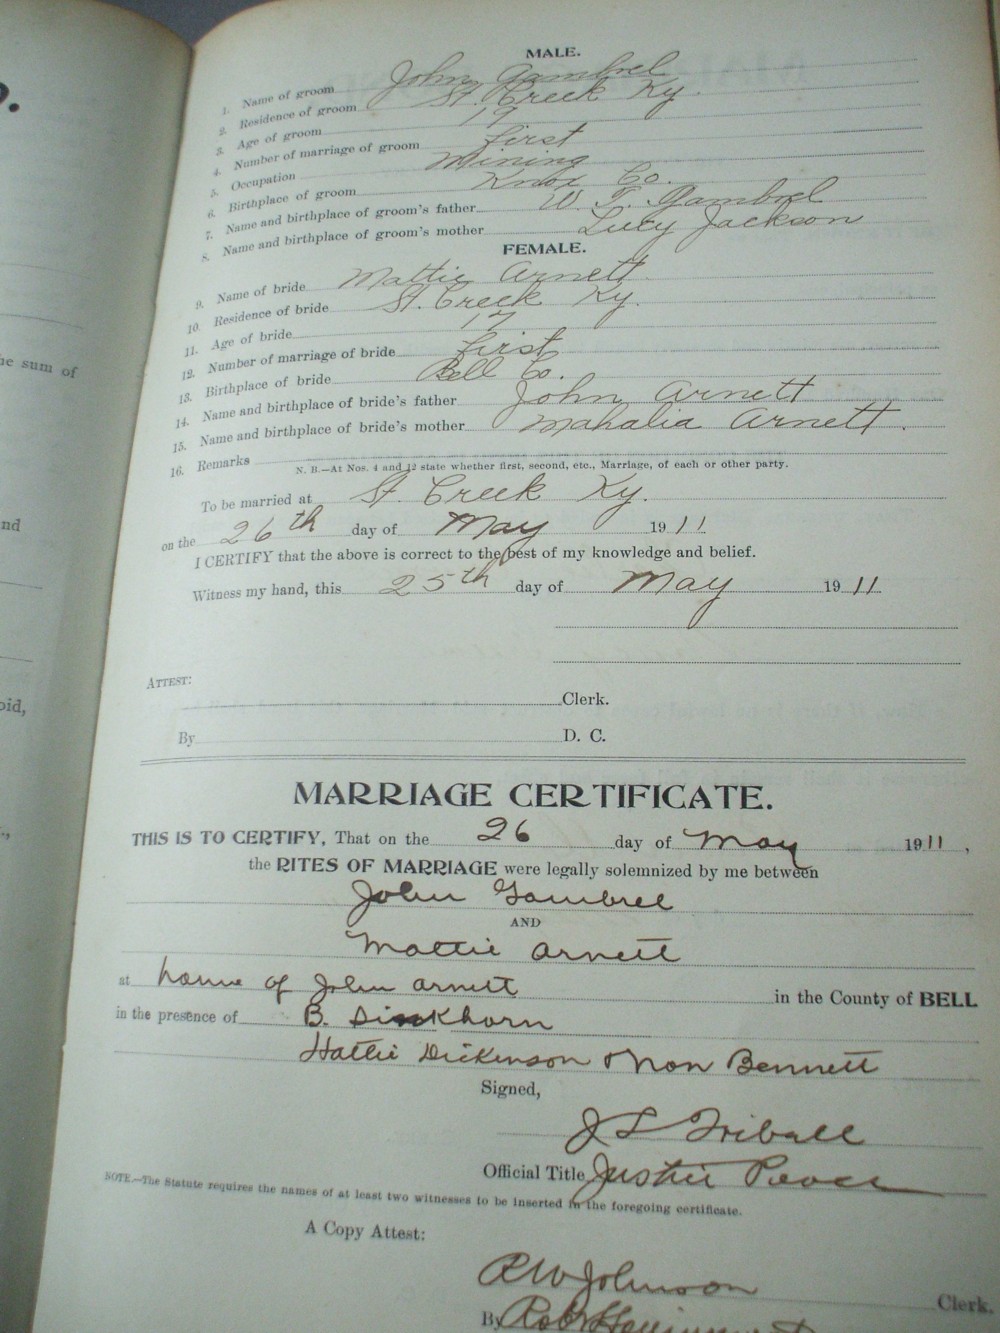 MALE.
1. Name of groom John Gambrel
2. Residence of groom St. Creek Ky.
3. Age of groom 19
4. Number of marriage of groom first
5. Occupation Mining
6. Birthplace of groom Knox Co.
7. Name and birthplace of groom's father W. T. Gambrel
8. Name and birthplace of groom's mother Lucy Jackson
FEMALE.
9. Name of bride Mattie Arnett
10. Residence of bride St. Creek Ky.
11. Age of bride 17
12. Number of marriage of bride first
13. Birthplace of bride Bell Co.
14. Name and birthplace of bride's father John Arnett
15. Name and birthplace of bride's mother Mahalia Arnett.
16. Remarks
N. B.—At Nos. 4 and 12 state whether first, second, etc., Marriage, of each or other party.
To be married at St. Creek Ky.
on the 26th day of May 1911
I CERTIFY that the above is correct to the best of my knowledge and belief.
Witness my hand, this 25th day of May 1911
ATTEST:
Clerk.
By D. C.
MARRIAGE CERTIFICATE.
THIS IS TO CERTIFY, That on the 26 day of May 1911,
the RITES OF MARRIAGE were legally solemnized by me between
John Gambrel
AND
Mattie Arnett
at home of John Arnett in the County of BELL
in the presence of B. Sinkhorn
Hattie Dickinson Bennett
Signed,
J L
Official Title Justic Peace
NOTE.—The Statute requires the names of at least two witnesses to be inserted in the foregoing certificate.
A Copy Attest:
R W Johnson Clerk.
By
he sum of
nd
oid,